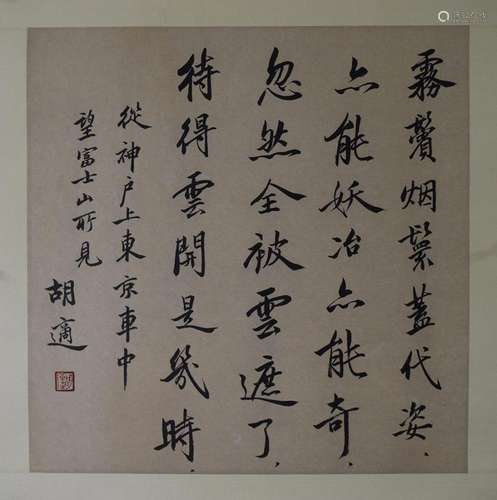 霧鬢烟鬟蓋代姿、
亦能妖冶亦能奇、
忽然全被雲遮了、
待得雲開是幾時、
從神户上東京車中
望富士山所見
胡適